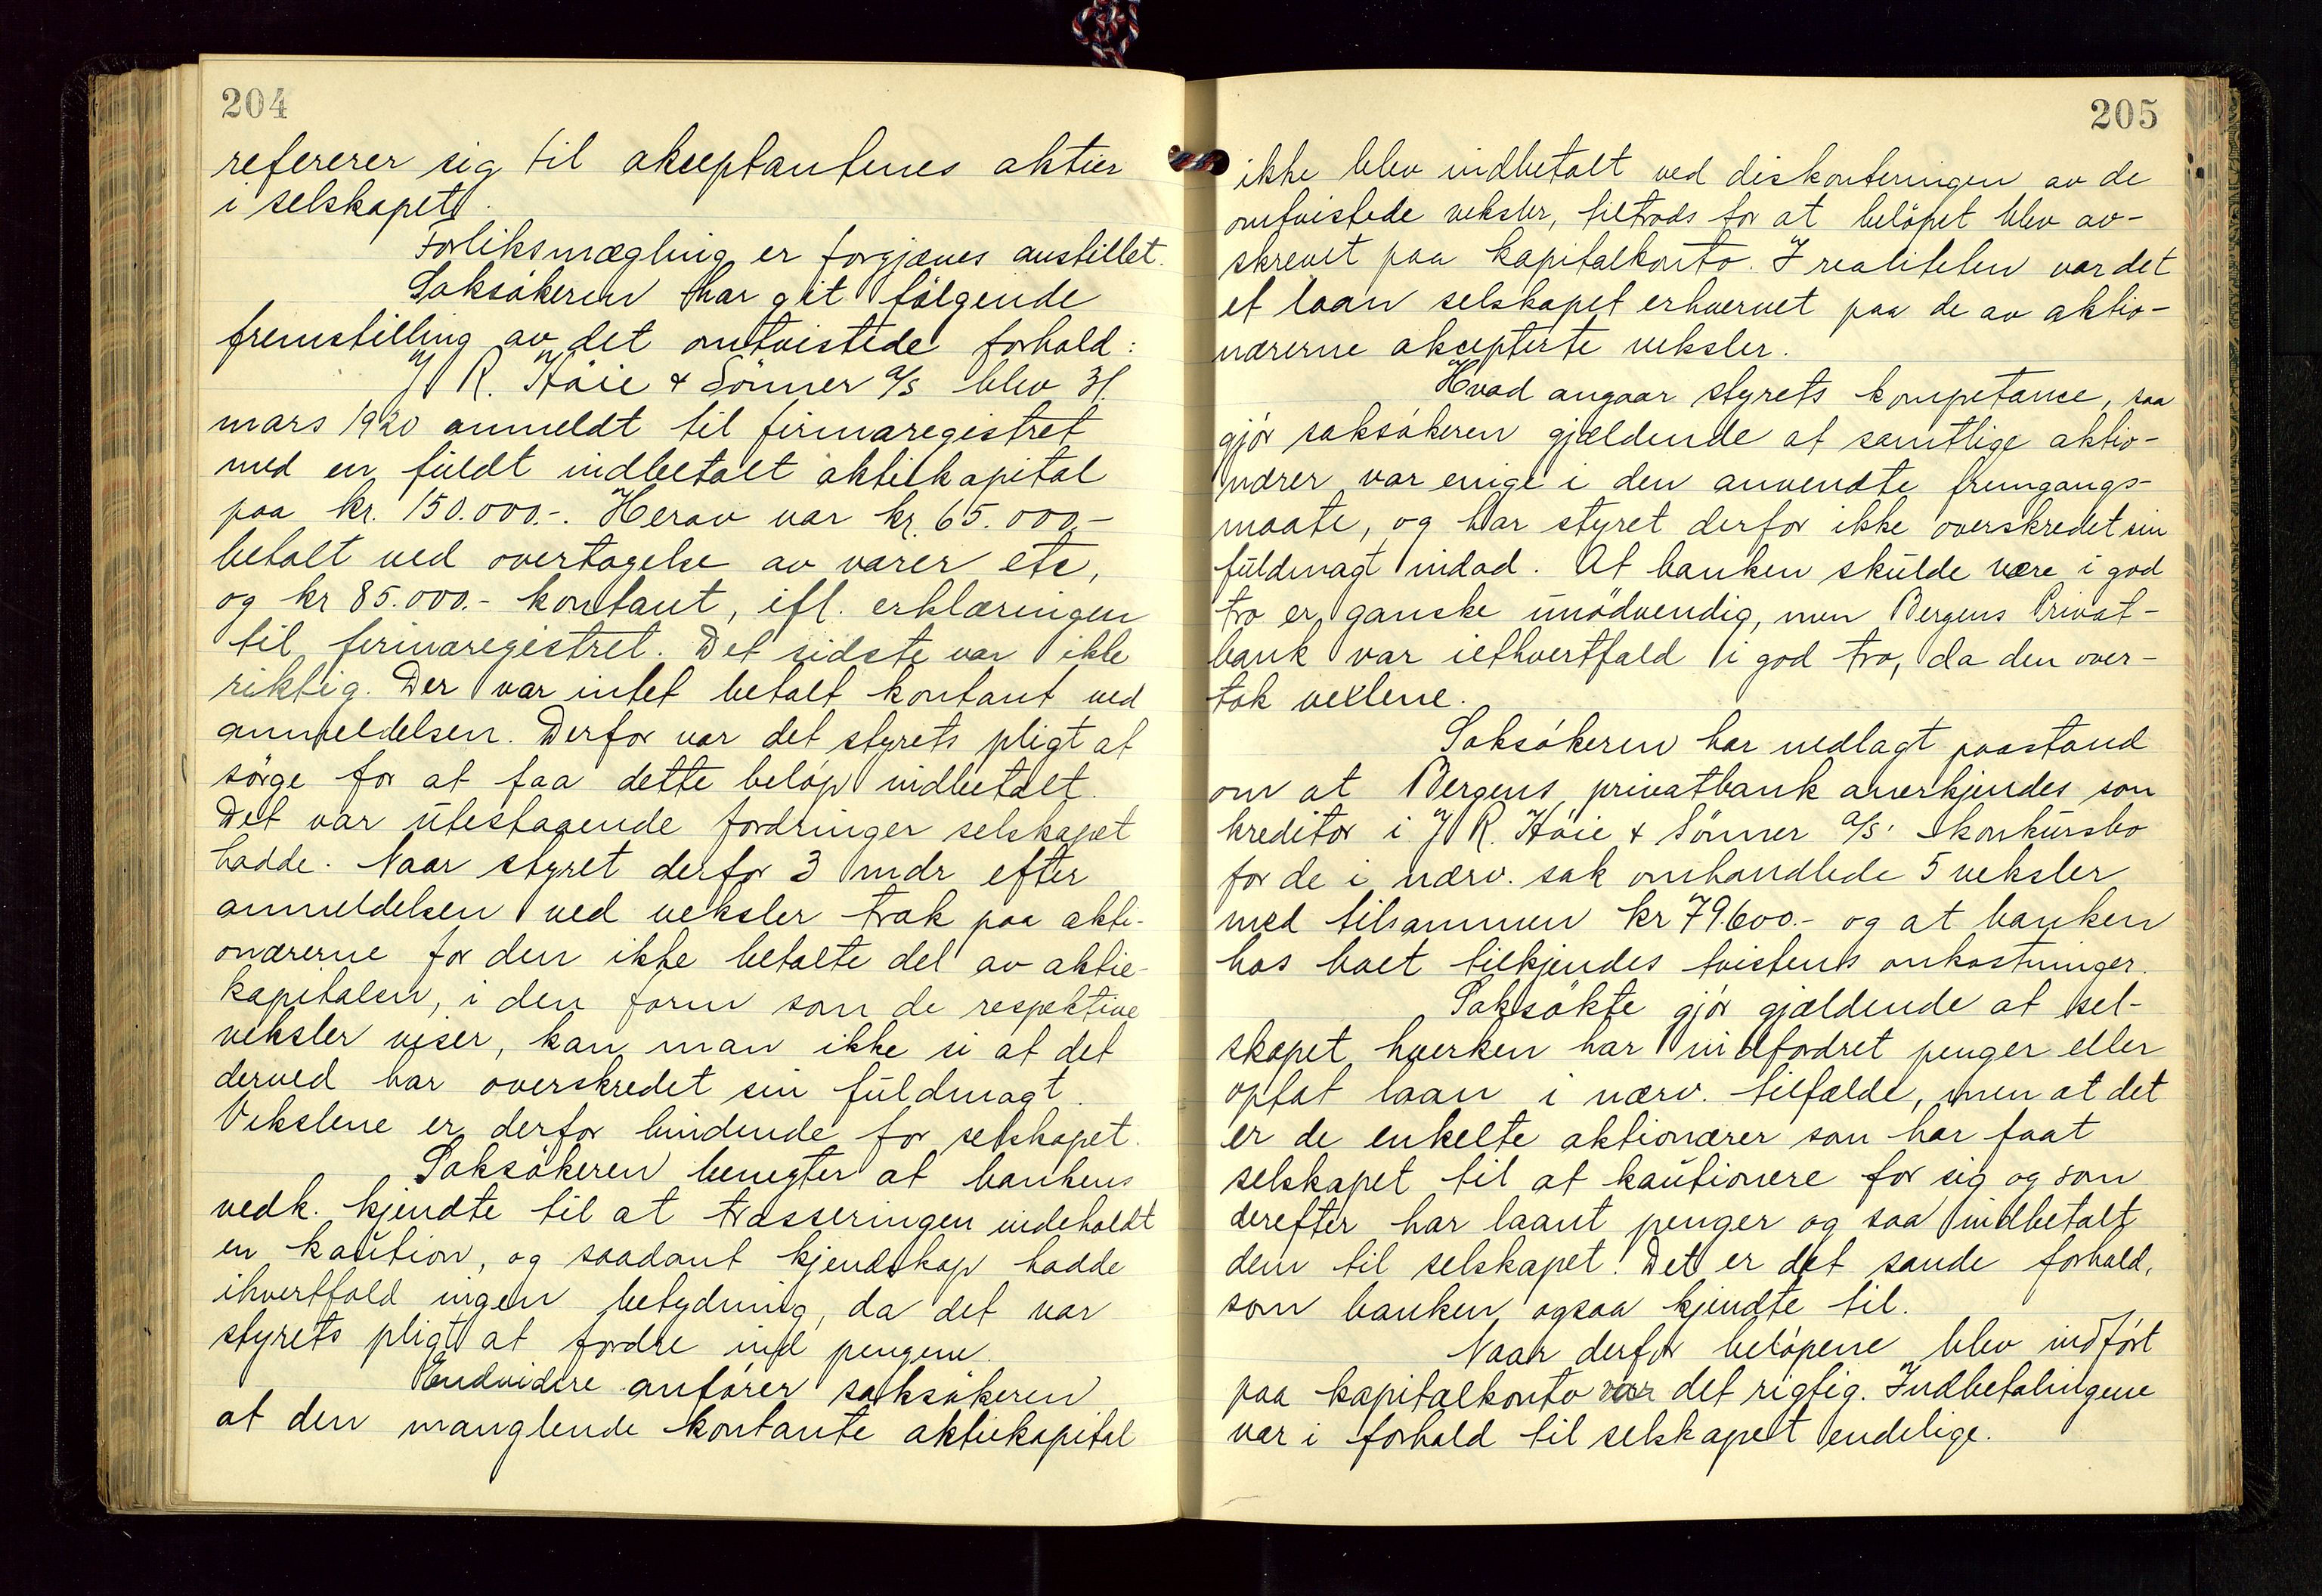 204
refererer sig til akseptantenes aktier
i selskapet.
Forliksmægling er forgjæves anstillet.
Saksökeren har git fölgende
fremstilling av det omtvistede forhold:
J R. Höie & Sönner a/s blev 31.
mars 1920 anmeldt til firmaregistret
med en fuldt indbetalt aktiekapital
paa kr. 150.000.-. Herav var kr. 65.000.-
betalt ved overtagelse av varer etc,
og kr 85.000.- kontant, ifl. erklæringen
til firmaregistret. Det sidste var ikke
riktig. Der var intet betalt kontant ved
anmeldelsen. Derfor var det styrets pligt at
sörge for at faa dette belöp indbetalt.
Det var utestaaende fordringer selskapet
hadde. Naar styret derfor 3 mdr efter
anmeldelsen ved veksler trak paa akti-
onærerne for den ikke betalte del av aktie-
kapitalen, i den form som de respektive
veksler viser, kan man ikke si at det
derved har overskredet sin fuldmagt.
Vekslene er derfor bindende for selskapet.
Saksökeren benegter at bankens
vedk. kjendte til at trasseringen indeholdt
en kaution, og saadant kjendskap hadde
ihvertfald ingen betydning, da det var
styrets pligt at fordre ind pengene.
Endvidere anförer saksökeren
at den manglende kontante aktiekapital
205
ikke blev indbetalt ved diskonteringen av de
omtvistede veksler, tiltrods for at belöpet blev av-
skrevet paa kapitalkonto. I realiteten var det
et laan selskapet erhvervet paa de av aktio-
nærerne aksepterte veksler.
Hvad angaar styrets kompetance, saa
gjör saksökeren gjældende at samtlige aktio-
nærer var enige i den anvendte fremgangs-
maate, og har styret derfor ikke overskredet sin
fuldmagt indad. At banken skulde være i god
tro er ganske unödvendig, men Bergens Privat-
bank var iethvertfald i god tro, da den over-
tok vexlene.
Saksökeren har nedlagt paastand
om at Bergens privatbank anerkjendes som
kreditor i J R. Höie & Sönner a/s' konkursbo
for de i nærv. sak omhandlede 5 veksler
med tilsammen kr 79.600.- og at banken
hos boet tilkjendes tvistens omkostninger.
Saksökte gjör gjældende at sel-
skapet hverken har indfordret penger eller
optat laan i nærv. tilfælde, men at det
er de enkelte aktionærer som har faat
selskapet til at kautionere for sig og som
derefter har laant penger og saa indbetalt
dem til selskapet. Det er det sande forhold,
som banken ogsaa kjendte til.
Naar derfor belöpene blev indfört
paa kapitalkonto var det rigtig. Indbetalingene
var i forhold til selskapet endelige.